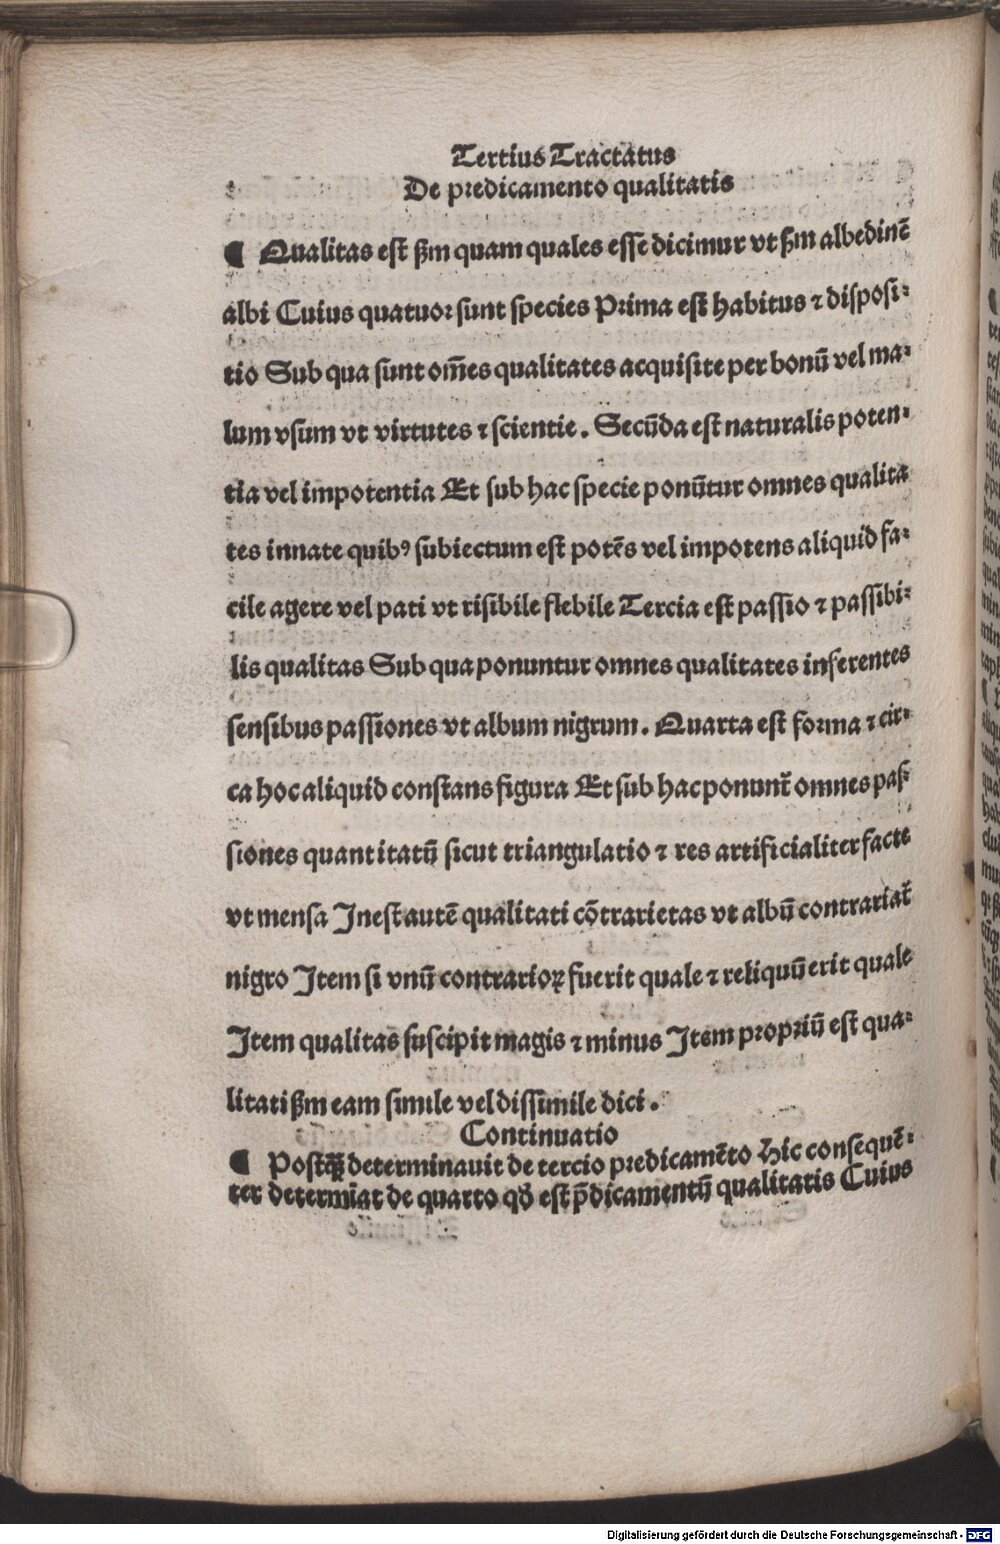 Tertius Tractatus
De predicamento qualitatis
¶ Qualitas est ẜm quam quales esse dicimur vt ẜm albedinē
albi Cuius quatuor sunt species Prima est habitus ⁊ disposi⸗
tio Sub qua sunt om̄es qualitates acquisite per bonū vel ma⸗
lum vsum vt virtutes ⁊ scientie. Secūda est naturalis poten⸗
tia vel impotentia Et sub hac specie ponūtur omnes qualita
tes innate quibꝰ subiectum est potēs vel impotens aliquid fa⸗
cile agere vel pati vt risibile flebile Tercia est passio ⁊ passibi⸗
lis qualitas Sub qua ponuntur omnes qualitates inferentes
sensibus passiones vt album nigrum. Quarta est forma ⁊ cir⸗
ca hoc aliquid constans figura Et sub hac ponunt̄ omnes pas⸗
siones quantitatū sicut triangulatio ⁊ res artificialiter facte
vt mensa Inest autē qualitati cōtrarietas vt albū contrariat̄
nigro Item si vnū contrarioꝝ fuerit quale ⁊ reliquū erit quale
Item qualitas suscipit magis ⁊ minus Item propriū est qua⸗
litati ẜm eam simile vel dissimile dici.
Continuatio
¶ Postꝙ̄ determinauit de tercio predicamēto Hic consequē⸗
ter determīat de quarto qḋ est p̄dicamentū qualitatis Cuius
Digitalisierung gefördert durch die Deutsche Forschungsgemeinschaft - DFG